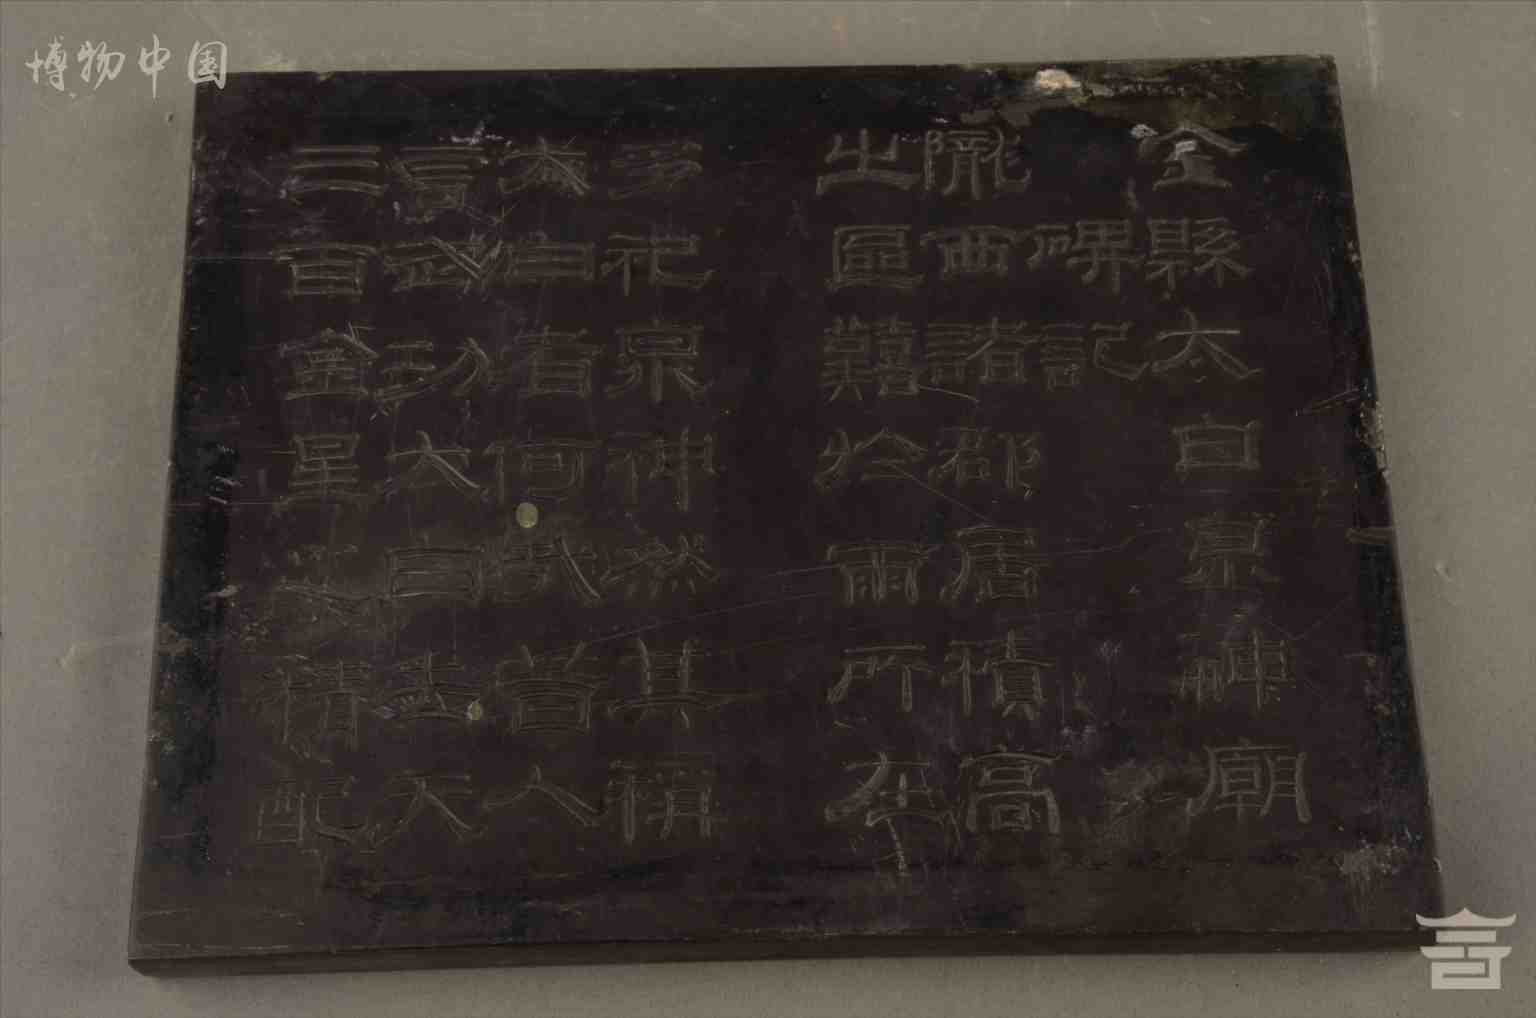 博物中国
金縣太白泉神廟
碑記
隴西諸郡居積高
之區難於雨所在
多祀泉神然其稱
太白者何哉昔人
言武功太白去天
三百金星之精配